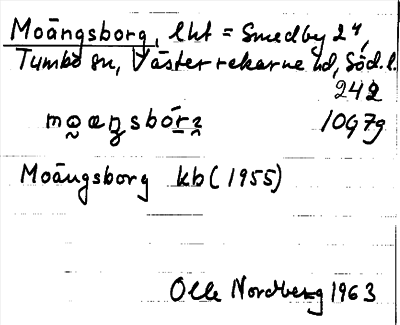 Moängsborg, lht = Smedby 2⁴,
Tumbo sn, Västerrekarne hd, Söd.l.
242
moaŋsbórj 10G7g
Moängsborg kb (1955)
Olle Nordberg 1963